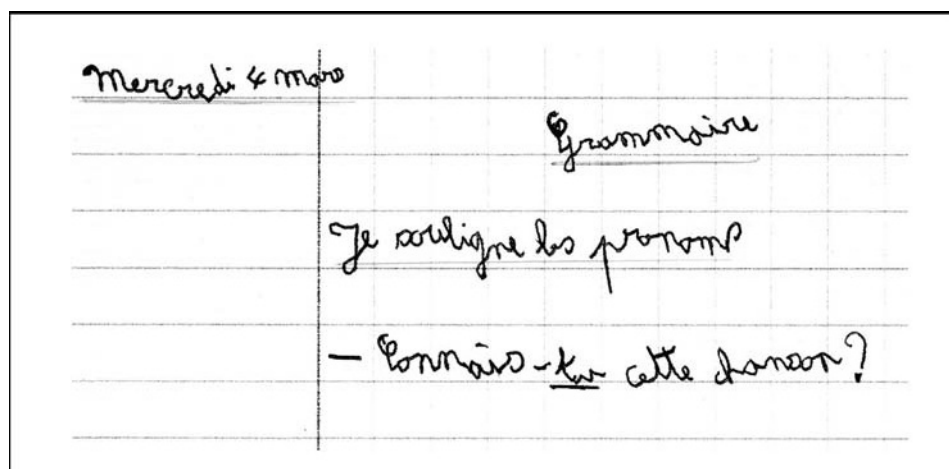 Mercredi 4 mars
Grammaire
Je souligne les pronoms
— Connais-tu cette chanson ?